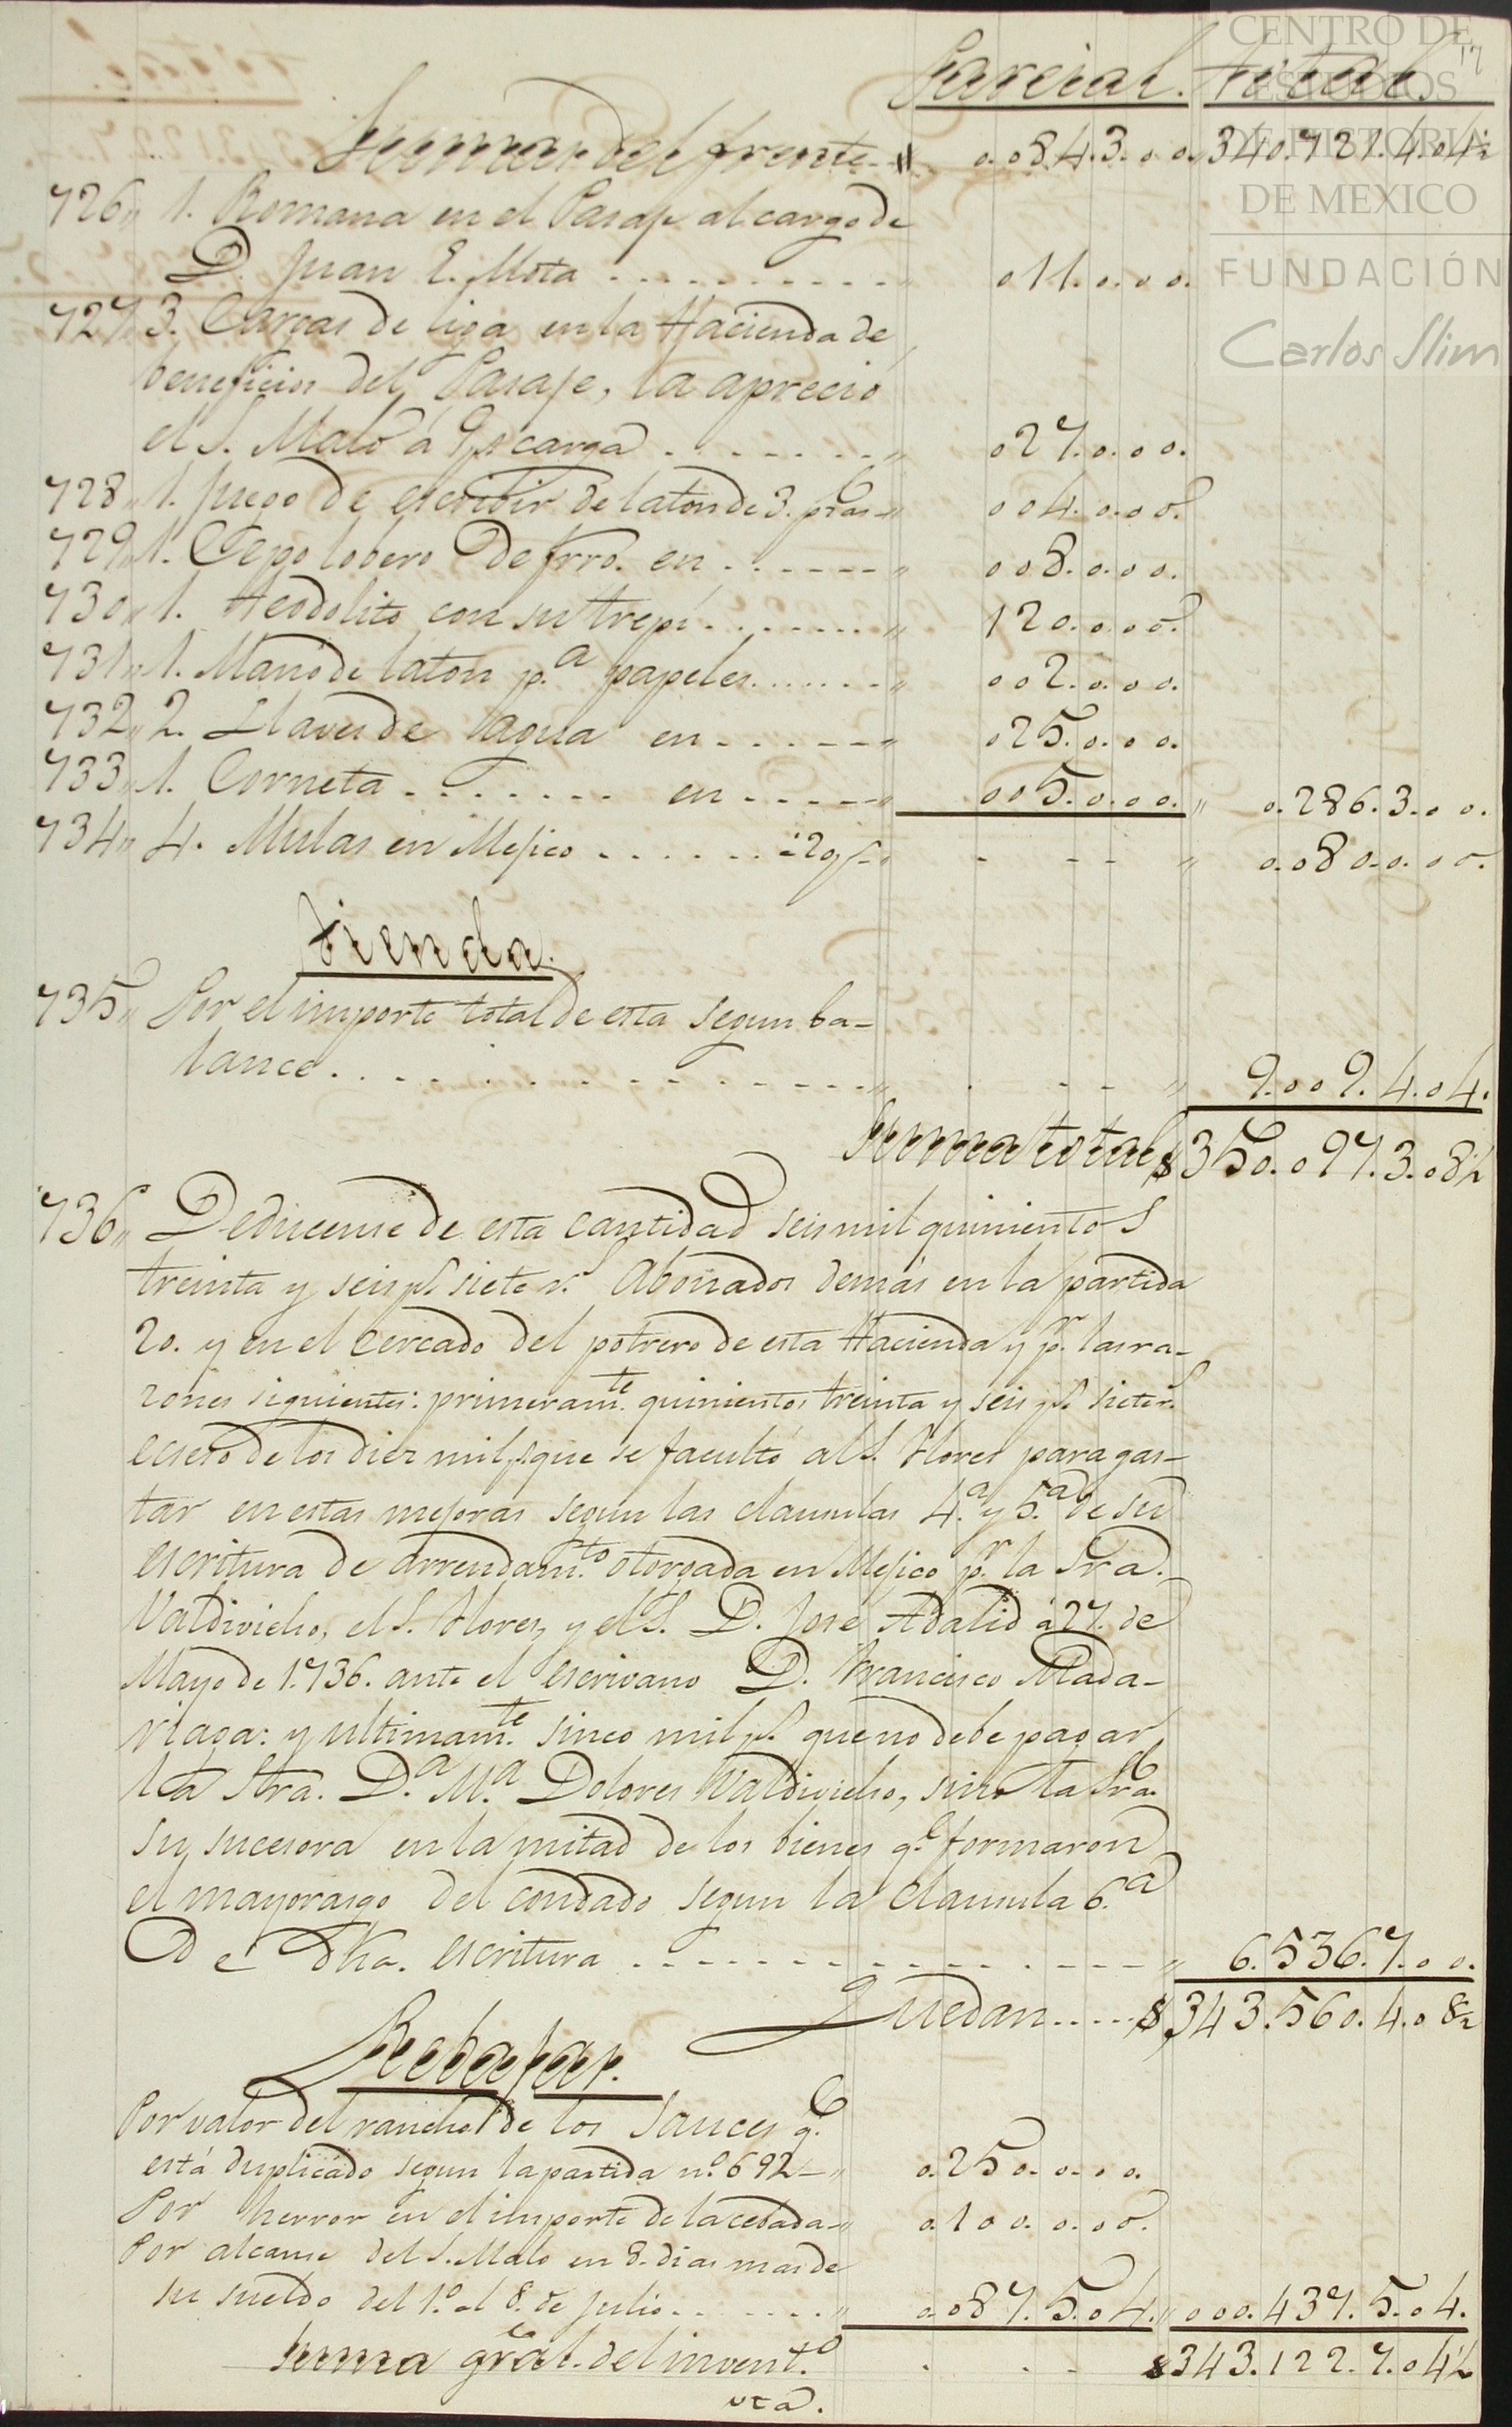 Parcial. Total. 17
Sumas del frente " 0.084.3.00. 340.721.4.04½
726" 1. Romana en el Pasaje al cargo de
D. Juan E. Mota . . . . . . . . . . " 011.0.00.
727" 3. Cargas de liga en la Hacienda de
beneficios del Pasaje, la apreció
el S. Malo á 9ps carga . . . . . . . " 027.0.00.
728" 1. Juego de escribir de laton de 3. pzas " 004.0.00.
729" 1. Cepo lobero de frro. en . . . . . . " 008.0.00.
730" 1. Teodolito con su trepi . . . . . . . " 120.0.00.
731" 1. Mano de laton p.a papeles . . . . . . " 002.0.00.
732" 2. Llaves de agua en . . . . . " 025.0.00.
733" 1. Corneta . . . . . . . en . . . . . " 005.0.00. " 0.286.3.00.
734" 4. Mulas en Mejico . . . . . . á 20ps " - - - " 0.080.0.00.
Tienda.
735" Por el importe total de esta segun ba-
lance . . . . . . . . . . . . . . . . " . - - " 9.009.4.04.
Suma total $350.097.3.08½
736" Deducense de esta cantidad seis mil quinientos
treinta y seis ps. siete rs. Abonados demás en la partida
20. y en el cercado del potrero de esta Hacienda y pr. las ra-
zones siguientes: primeramte. quinientos treinta y seis ps. siete rs.
eceso de los diez mil ps que se facultó al S. Flores para gas-
tar en estas mejoras segun las clausulas 4.a y 5.a de su
escritura de arrendamto. otorgada en Mejico pr. la Sra.
Valdivielso, el S. Flores, y el S. D. José Adalid á 27. de
Mayo de 1.736. ante el escrivano D. Francisco Mada-
riaga: y ultimamte. sinco mil ps. que no debe pagar
la Sra. D.a M.a Dolores Valdivielso, sino la Sra.
su sucesora en la mitad de los bienes qe. formaron
el mayorasgo del condado segun la clausula 6.a
De dha. escritura . . . . . . . . . . . . . . . . " 6.536.7.00.
Quedan . . . . . $343.560.4.08½
Rebajar.
Por valor del rancho de los Sauces q.e
está duplicado segun la partida n.o 692 - " 0.250.0.00.
Por herror en el importe de la cebada - " 0.100.0.00.
Por alcanse del S. Malo en 8. dias mas de
su sueldo del 1.o al 8. de julio . . . . . . . " 0.087.5.04. " 000.437.5.04.
Suma gral. del invent.o . . - $343.122.7.04½
uta.
CENTRO DE
ESTUDIOS
DE HISTORIA
DE MEXICO
FUNDACIÓN
Carlos Slim